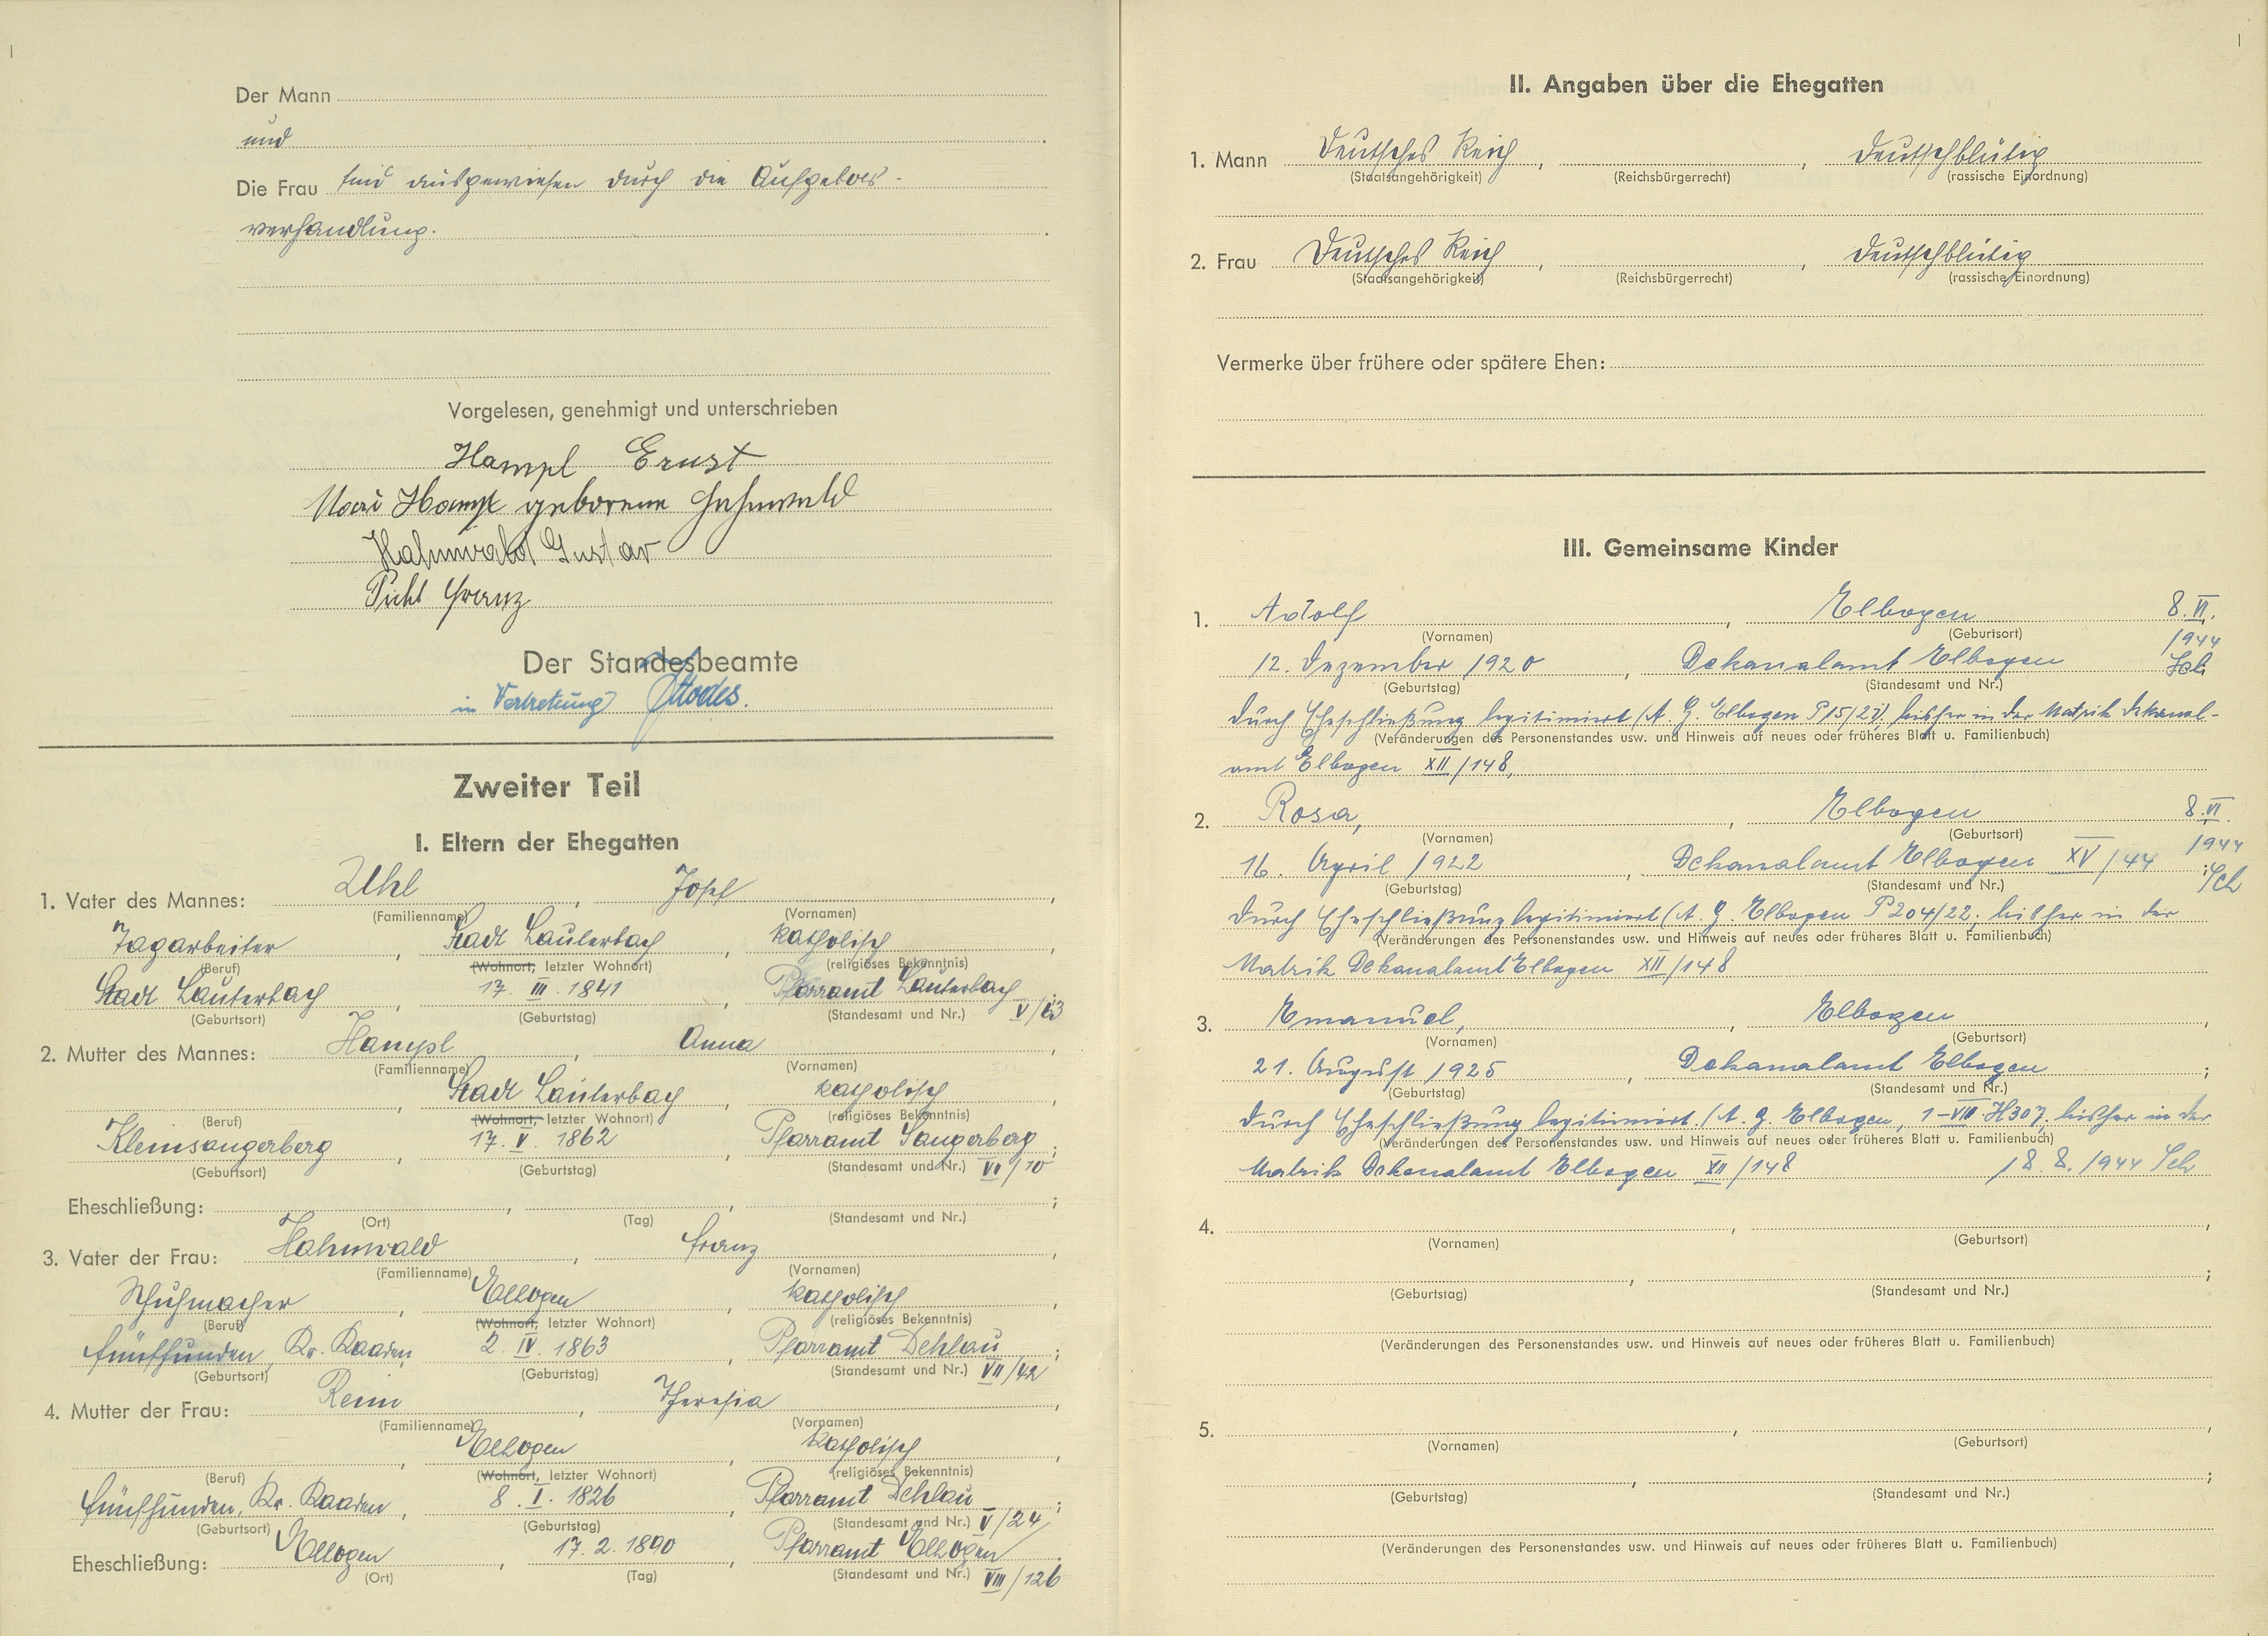 Der Mann
und
Die Frau sind ausgewiesen durch die Aufgebots-
verhandlung.
Vorgelesen, genehmigt und unterschrieben
Hampl Ernst
Mari Hampl geborene Hahnwald
Hahnwald Gustav
Pichl Franz
Der Standesbeamte
in Vertretung
Zweiter Teil
I. Eltern der Ehegatten
1. Vater des Mannes: Uhl, Josef,
(Familienname) (Vornamen)
Tagarbeiter, Stadt Lauterbach, katholisch,
(Beruf) (Wohnort, letzter Wohnort) (religiöses Bekenntnis)
Stadt Lauterbach, 17. III. 1841, Pfarramt Lauterbach V/63;
(Geburtsort) (Geburtstag) (Standesamt und Nr.)
2. Mutter des Mannes: Hampl, Anna,
(Familienname) (Vornamen)
, Stadt Lauterbach, katholisch,
(Beruf) (Wohnort, letzter Wohnort) (religiöses Bekenntnis)
Kleinsangerberg, 17. V. 1862, Pfarramt Sangerberg VI/10;
(Geburtsort) (Geburtstag) (Standesamt und Nr.)
Eheschließung: , , ;
(Ort) (Tag) (Standesamt und Nr.)
3. Vater der Frau: Hahnwald, Franz,
(Familienname) (Vornamen)
Schuhmacher, Elbogen, katholisch,
(Beruf) (Wohnort, letzter Wohnort) (religiöses Bekenntnis)
Fünfhunden, Kr. Kaaden, 2. IV. 1863, Pfarramt Dehlau VII/42;
(Geburtsort) (Geburtstag) (Standesamt und Nr.)
4. Mutter der Frau: , Theresia,
(Familienname) (Vornamen)
, Elbogen, katholisch,
(Beruf) (Wohnort, letzter Wohnort) (religiöses Bekenntnis)
Fünfhunden, Kr. Kaaden, 8. I. 1826, Pfarramt Dehlau V/24;
(Geburtsort) (Geburtstag) (Standesamt und Nr.)
Eheschließung: Elbogen, 17. 2. 1890, Pfarramt Elbogen VIII/126.
(Ort) (Tag) (Standesamt und Nr.)
II. Angaben über die Ehegatten
1. Mann Deutsches Reich, , deutschblütig
(Staatsangehörigkeit) (Reichsbürgerrecht) (rassische Einordnung)
2. Frau Deutsches Reich, , deutschblütig
(Staatsangehörigkeit) (Reichsbürgerrecht) (rassische Einordnung)
Vermerke über frühere oder spätere Ehen:
III. Gemeinsame Kinder
1. Adolf, Elbogen 8. VI.
(Vornamen) (Geburtsort) 1944
12. Dezember 1920, Dekanalamt Elbogen Sch
(Geburtstag) (Standesamt und Nr.)
durch Eheschließung legitimiert (A. G. Elbogen P 15/21) bisher in der Matrik Dekanal-
(Veränderungen des Personenstandes usw. und Hinweis auf neues oder früheres Blatt u. Familienbuch)
amt Elbogen XII/148,
2. Rosa, Elbogen 8. VI.
(Vornamen) (Geburtsort) 1944
16. April 1922, Dekanalamt Elbogen XV/44; Sch
(Geburtstag) (Standesamt und Nr.)
durch Eheschließung legitimiert (A. G. Elbogen P 204/22. bisher in der
(Veränderungen des Personenstandes usw. und Hinweis auf neues oder früheres Blatt u. Familienbuch)
Matrik Dekanalamt Elbogen XII/148
3. Emanuel, Elbogen,
(Vornamen) (Geburtsort)
21. August 1925, Dekanalamt Elbogen;
(Geburtstag) (Standesamt und Nr.)
durch Eheschließung legitimiert (A. G. Elbogen, 1-VIII-H307, bisher in der
(Veränderungen des Personenstandes usw. und Hinweis auf neues oder früheres Blatt u. Familienbuch)
Matrik Dekanalamt Elbogen XII/148 18. 8. 1944 Sch
4. , ,
(Vornamen) (Geburtsort)
, ;
(Geburtstag) (Standesamt und Nr.)
(Veränderungen des Personenstandes usw. und Hinweis auf neues oder früheres Blatt u. Familienbuch)
5. , ,
(Vornamen) (Geburtsort)
, ;
(Geburtstag) (Standesamt und Nr.)
(Veränderungen des Personenstandes usw. und Hinweis auf neues oder früheres Blatt u. Familienbuch)